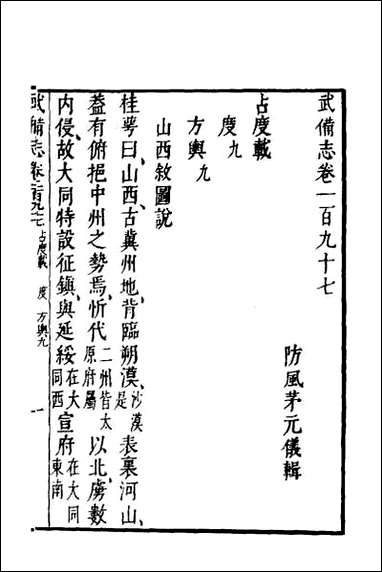 武備志卷一百九十七
防風茅元儀輯
占度載
度九
方輿九
山西敘圖說
桂萼曰山西古冀州地背臨朔漠沙漠是表裏河山
蓋有俯挹中州之勢焉忻代二州皆太原府屬以北虜數
内侵故大同特設征鎮與延綏在大同西宣府在大同東南
武備志卷一百九十七 占度載 度 方輿九 一